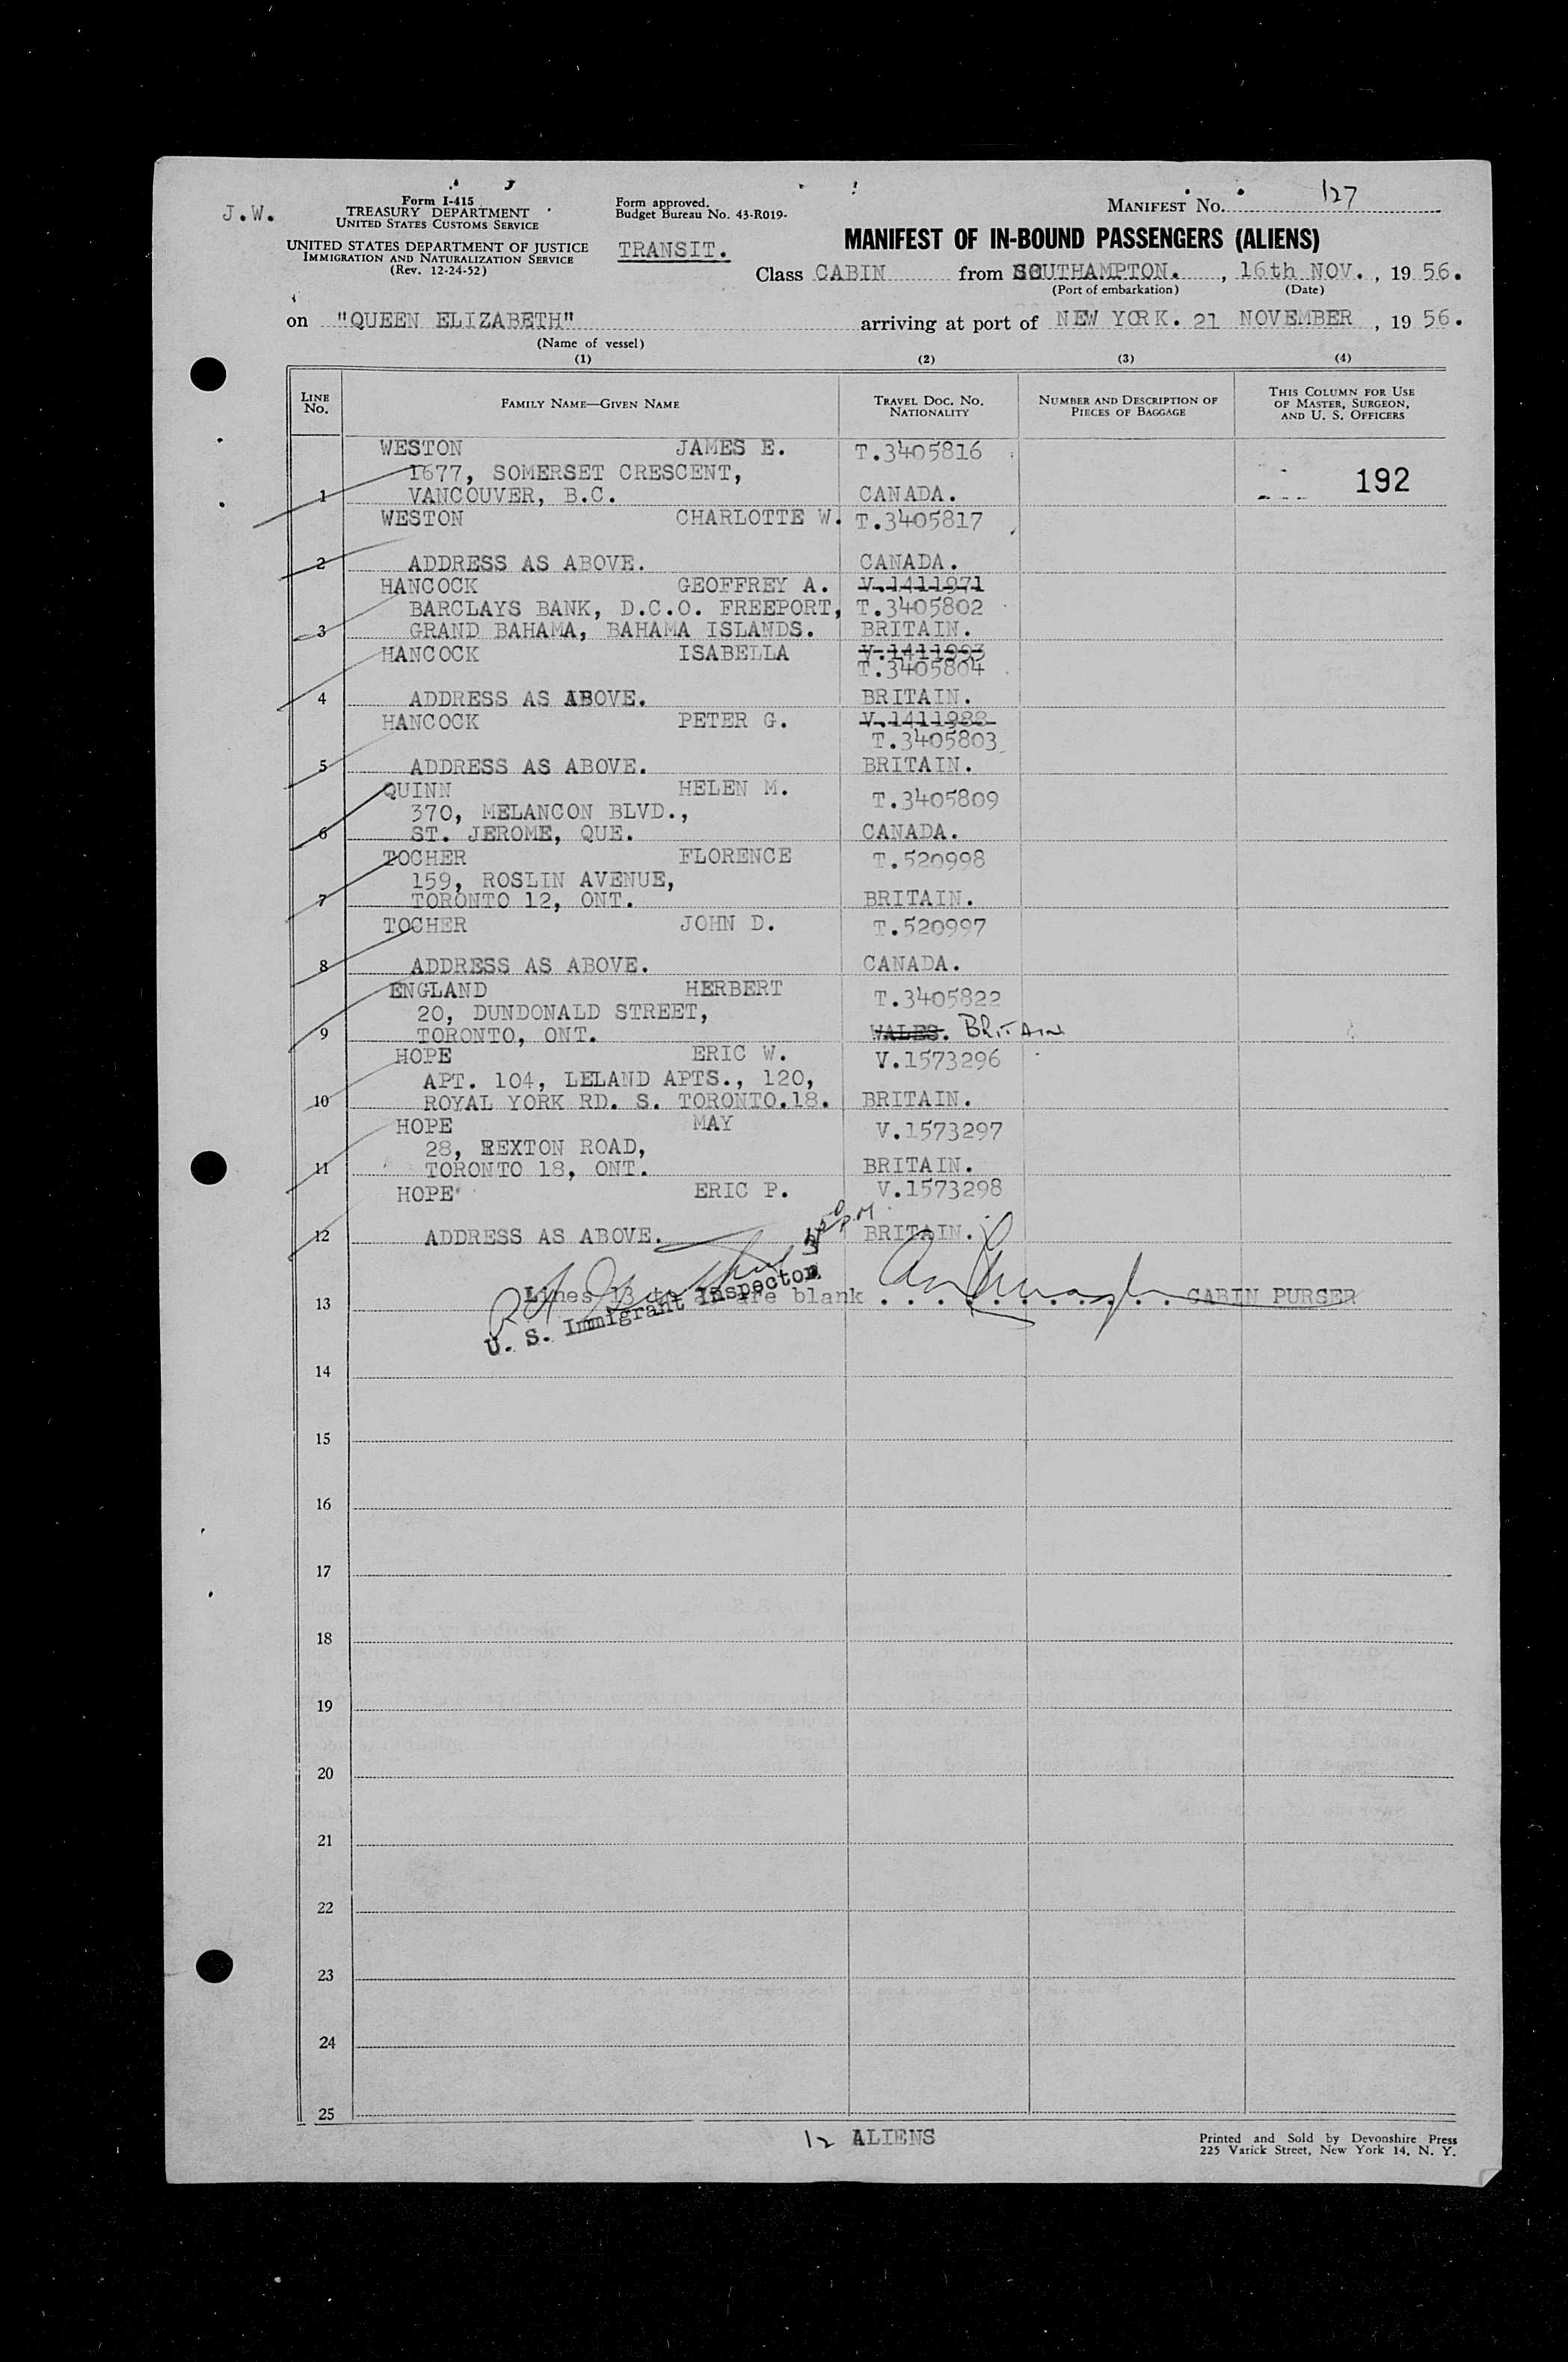 J.W.
Form I-415
TREASURY DEPARTMENT
UNITED STATES CUSTOMS SERVICE
UNITED STATES DEPARTMENT OF JUSTICE
IMMIGRATION AND NATURALIZATION SERVICE
(Rev. 12-24-52)
Form approved.
Budget Bureau No. 43-R019-
TRANSIT.
MANIFEST NO. 127
MANIFEST OF IN-BOUND PASSENGERS (ALIENS)
Class CABIN from SOUTHAMPTON. , 16th NOV. , 19 56.
(Port of embarkation) (Date)
on "QUEEN ELIZABETH" arriving at port of NEW YORK. 21 NOVEMBER , 19 56.
(Name of vessel)
(1) (2) (3) (4)
LINE NO. FAMILY NAME—GIVEN NAME TRAVEL DOC. NO. NATIONALITY NUMBER AND DESCRIPTION OF PIECES OF BAGGAGE THIS COLUMN FOR USE OF MASTER, SURGEON, AND U. S. OFFICERS
WESTON JAMES E. T.3405816
1677, SOMERSET CRESCENT, 192
1 VANCOUVER, B.C. CANADA.
WESTON CHARLOTTE W. T.3405817
2 ADDRESS AS ABOVE. CANADA.
HANCOCK GEOFFREY A. V.1411971
BARCLAYS BANK, D.C.O. FREEPORT, T.3405802
3 GRAND BAHAMA, BAHAMA ISLANDS. BRITAIN.
HANCOCK ISABELLA V.1411993
T.3405804
4 ADDRESS AS ABOVE. BRITAIN.
HANCOCK PETER G. V.1411988
T.3405803
5 ADDRESS AS ABOVE. BRITAIN.
QUINN HELEN M. T.3405809
370, MELANCON BLVD.,
6 ST. JEROME, QUE. CANADA.
TOCHER FLORENCE T.520998
159, ROSLIN AVENUE,
7 TORONTO 12, ONT. BRITAIN.
TOCHER JOHN D. T.520997
8 ADDRESS AS ABOVE. CANADA.
ENGLAND HERBERT T.3405822
20, DUNDONALD STREET,
9 TORONTO, ONT. WALES. BRITAIN
HOPE ERIC W. V.1573296
APT. 104, LELAND APTS., 120,
10 ROYAL YORK RD. S. TORONTO.18. BRITAIN.
HOPE MAY V.1573297
28, REXTON ROAD,
11 TORONTO 18, ONT. BRITAIN.
HOPE ERIC P. V.1573298
12 ADDRESS AS ABOVE. BRITAIN.
13 Lines 13 to are blank CABIN PURSER
U. S. Immigrant Inspector
14
15
16
17
18
19
20
21
22
23
24
25
12 ALIENS
Printed and Sold by Devonshire Press
225 Varick Street, New York 14, N. Y.